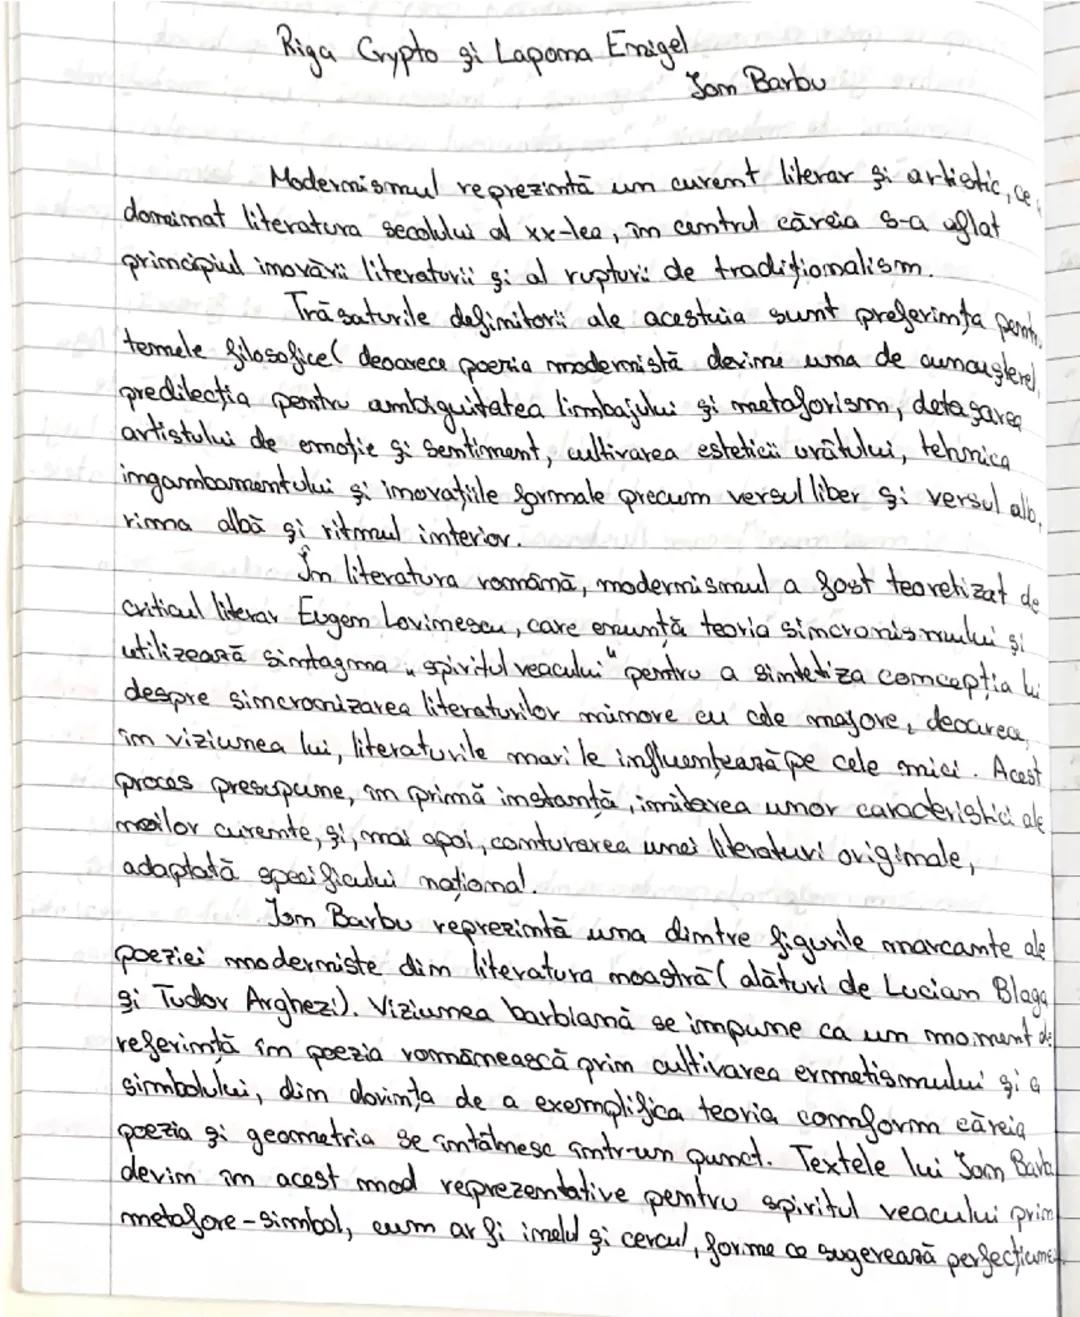 Riga Crypto și Lapona Enigel
Ion Barbu
Modernismul reprezintă un curent literar și artistic, ce a
dominat literatura secolului al xx-lea, în centrul căreia s-a aflat
principiul inovării literaturii și al rupturii de tradiționalism.
Trăsaturile definitorii ale acestuia sunt preferința pentru
temele filosofice( deoarece poezia modernistă devine una de cunoaștere),
predilecția pentru ambiguitatea limbajului și metaforism, detașarea
artistului de emoție și sentiment, cultivarea esteticii urâtului, tehnica
ingambamentului și inovațiile formale precum versul liber și versul alb,
rima albă și ritmul interior.
În literatura română, modernismul a fost teoretizat de
criticul literar Eugen Lovinescu, care enunță teoria sincronismului și
utilizează sintagma „spiritul veacului" pentru a sintetiza concepția lui
despre sincronizarea literaturilor minore cu cele majore, deoarece,
în viziunea lui, literaturile mari le influențează pe cele mici. Acest
proces presupune, în primă instanță, imitarea unor caracteristici ale
noilor curente, și, mai apoi, conturarea unei literaturi originale,
adaptată specificului național.
Ion Barbu reprezintă una dintre figurile marcante ale
poeziei moderniste din literatura noastră( alături de Lucian Blaga
și Tudor Arghezi). Viziunea barbiană se impune ca un moment de
referință în poezia românească prin cultivarea ermetismului și a
simbolului, din dorința de a exemplifica teoria conform căreia
poezia și geometria se întâlnesc într-un punct. Textele lui Ion Barbu
devin în acest mod reprezentative pentru spiritul veacului prin
metafore-simbol, cum ar fi inelul și cercul, forme ce sugerează perfecțiunea.